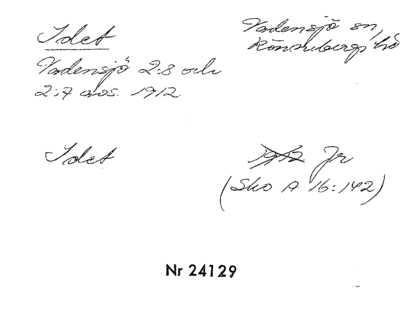 Idet
Vadensjö sn,
Rönnebergs hd
Vadensjö 2:8 och
2:7 avs. 1912
Idet
1912 Jr
(Sko A 16:142)
Nr 24129